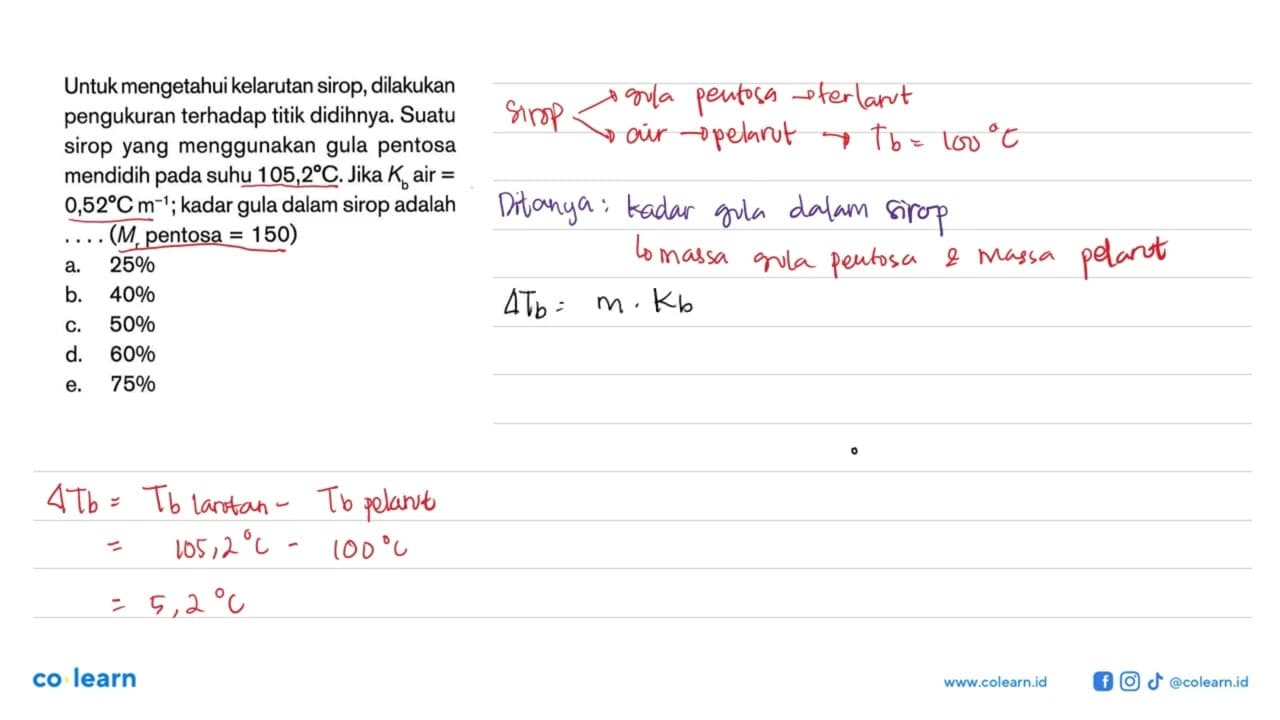 Untuk mengetahui kelarutan sirop, dilakukan
pengukuran terhadap titik didihnya. Suatu
sirop yang menggunakan gula pentosa
mendidih pada suhu 105,2°C. Jika K_b air =
0,52°C m⁻¹; kadar gula dalam sirop adalah
.... (M_r pentosa = 150)
a. 25%
b. 40%
c. 50%
d. 60%
e. 75%
sirop → gula pentosa → terlarut
→ air → pelarut → Tb = 100°C
Ditanya: kadar gula dalam sirop
↳ massa gula pentosa & massa pelarut
ΔTb = m . Kb
ΔTb = Tb larutan - Tb pelarut
= 105,2°C - 100°C
= 5,2°C
co learn
www.colearn.id
@colearn.id